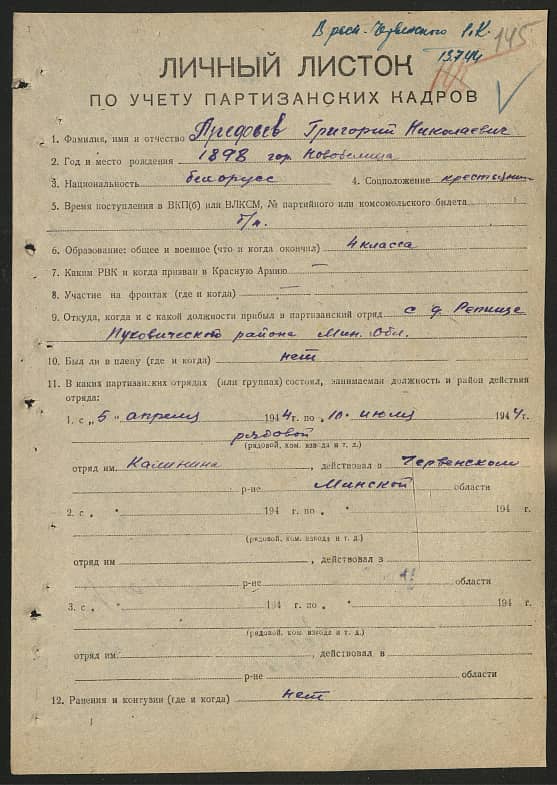 В расп. Червенского Р.К.
13.7.44
145
ЛИЧНЫЙ ЛИСТОК
ПО УЧЕТУ ПАРТИЗАНСКИХ КАДРОВ
1. Фамилия, имя и отчество Григорий Николаевич
2. Год и место рождения 1898 гор. Новобелица
3. Национальность белорусс 4. Соцположение крестьянин
5. Время поступления в ВКП(б) или ВЛКСМ, № партийного или комсомольского билета
б/п.
6. Образование: общее и военное (что и когда окончил) 4 класса
7. Каким РВК и когда призван в Красную Армию —
8. Участие на фронтах (где и когда) —
9. Откуда, когда и с какой должности прибыл в партизанский отряд с д. Репище
Пуховического района Мин. Обл.
10. Был ли в плену (где и когда) нет
11. В каких партизанских отрядах (или группах) состоял, занимаемая должность и район действия
отряда:
1. с „5" апреля 1944 г. по „10" июля 1944 г.
рядовой
(рядовой, ком. взвода и т. д.)
отряд им. Калинина, действовал в Червенском
р-не Минской области
2. с „ " 194 г. по „ " 194 г.
(рядовой, ком. взвода и т. д.)
отряд им, действовал в
р-не области
3. с „ " 194 г. по „ " 194 г.
(рядовой, ком взвода и т. д.)
отряд им., действовал в
р-не области
12. Ранения и контузии (где и когда) нет